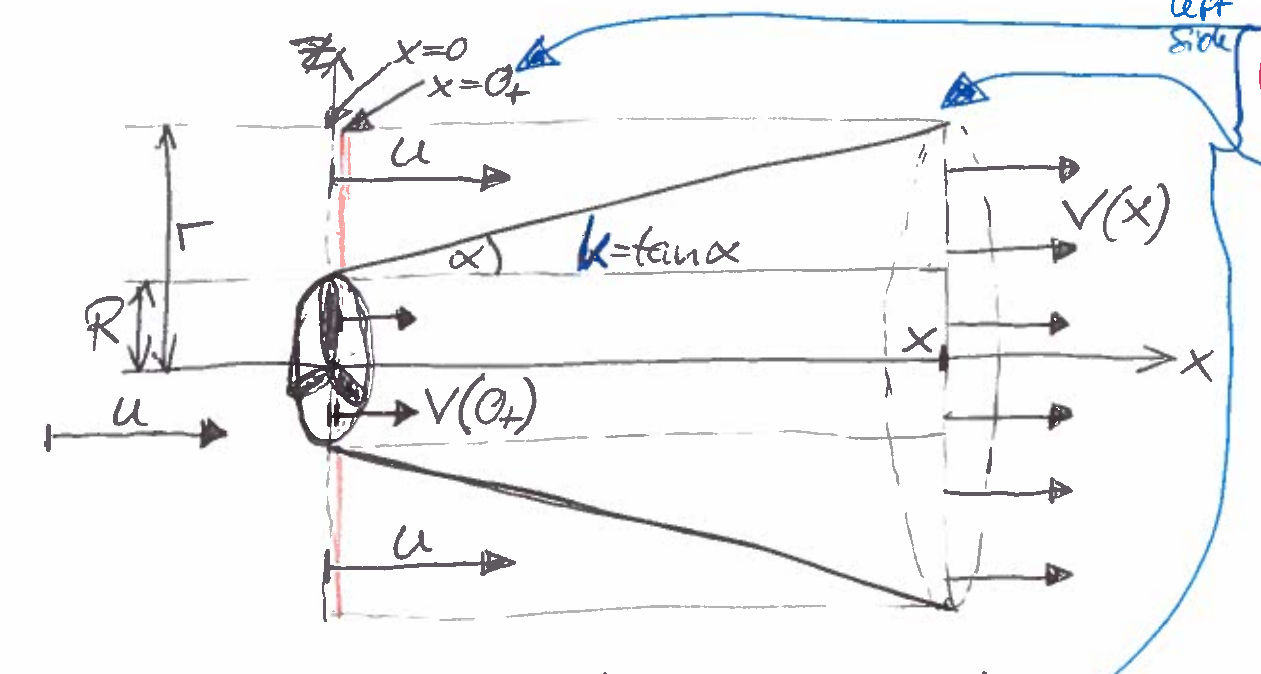 left
side
z
x=0
x=0+
u
r
α
k=tanα
V(x)
R
x
x
u
V(0+)
u